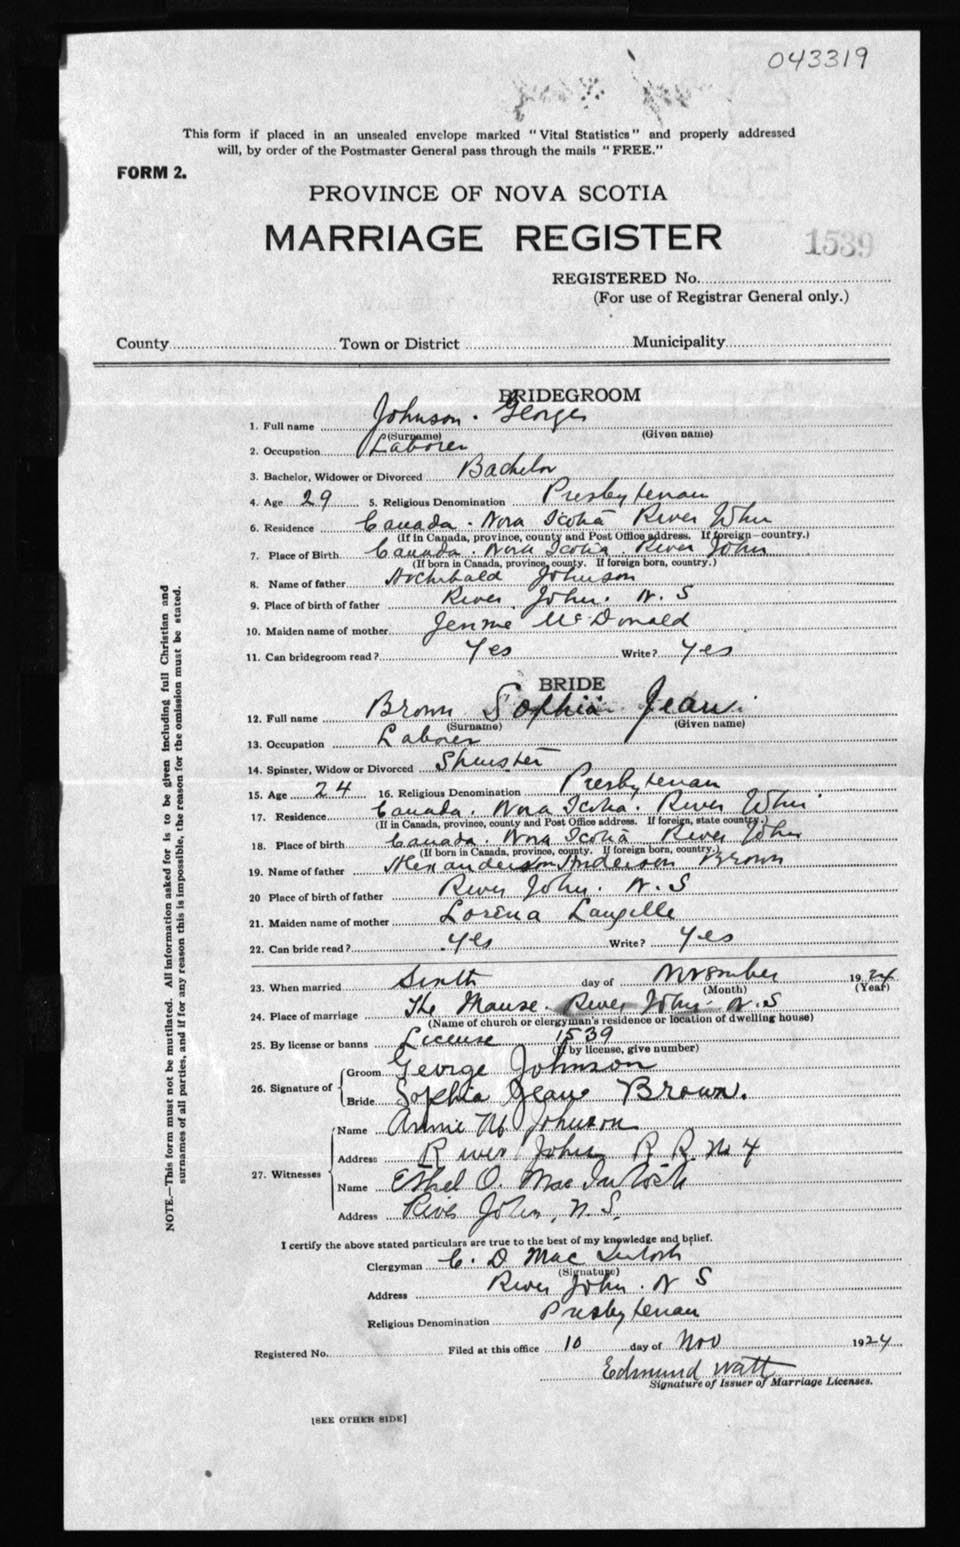 043319
This form if placed in an unsealed envelope marked "Vital Statistics" and properly addressed
will, by order of the Postmaster General pass through the mails "FREE."
FORM 2.
PROVINCE OF NOVA SCOTIA
MARRIAGE REGISTER
1539
REGISTERED No.
(For use of Registrar General only.)
County Town or District Municipality
BRIDEGROOM
1. Full name Johnson. George
(Surname) (Given name)
2. Occupation Laborer
3. Bachelor, Widower or Divorced Bachelor
4. Age 29 5. Religious Denomination Presbyterian
6. Residence Canada. Nova Scotia River John
(If in Canada, province, county and Post Office address. If foreign—country.)
7. Place of Birth Canada. Nova Scotia. River John
(If born in Canada, province, county. If foreign born, country.)
8. Name of father Archibald Johnson
9. Place of birth of father River John. N. S
10. Maiden name of mother Jennie McDonald
11. Can bridegroom read? Yes Write? Yes
BRIDE
12. Full name Brown Sophia Jean
(Surname) (Given name)
13. Occupation Laborer
14. Spinster, Widow or Divorced Spinster
15. Age 24 16. Religious Denomination Presbyterian
17. Residence Canada. Nova Scotia. River John
(If in Canada, province, county and Post Office address. If foreign, state country.)
18. Place of birth Canada. Nova Scotia River John
(If born in Canada, province, county. If foreign born, country.)
19. Name of father Anderson Brown
20 Place of birth of father River John. N. S
21. Maiden name of mother Lorena Langille
22. Can bride read? Yes Write? Yes
23. When married Sixth day of November 1924
(Month) (Year)
24. Place of marriage The Manse. River John N. S
(Name of church or clergyman's residence or location of dwelling house)
25. By license or banns License 1539
(If by license, give number)
26. Signature of Groom George Johnson
Bride Sophia Jean Brown.
27. Witnesses
Name Annie M Johnson
Address River John R R. No 4
Name Ethel O. MacIntosh
Address River John, N. S.
I certify the above stated particulars are true to the best of my knowledge and belief.
Clergyman C. D. MacIntosh
(Signature)
Address River John. N S
Religious Denomination Presbyterian
Registered No. Filed at this office 10 day of Nov 1924
Edmund Watt
Signature of Issuer of Marriage Licenses.
[SEE OTHER SIDE]
NOTE.—This form must not be mutilated. All information asked for is to be given including full Christian and
surnames of all parties, and if for any reason this is impossible, the reason for the omission must be stated.